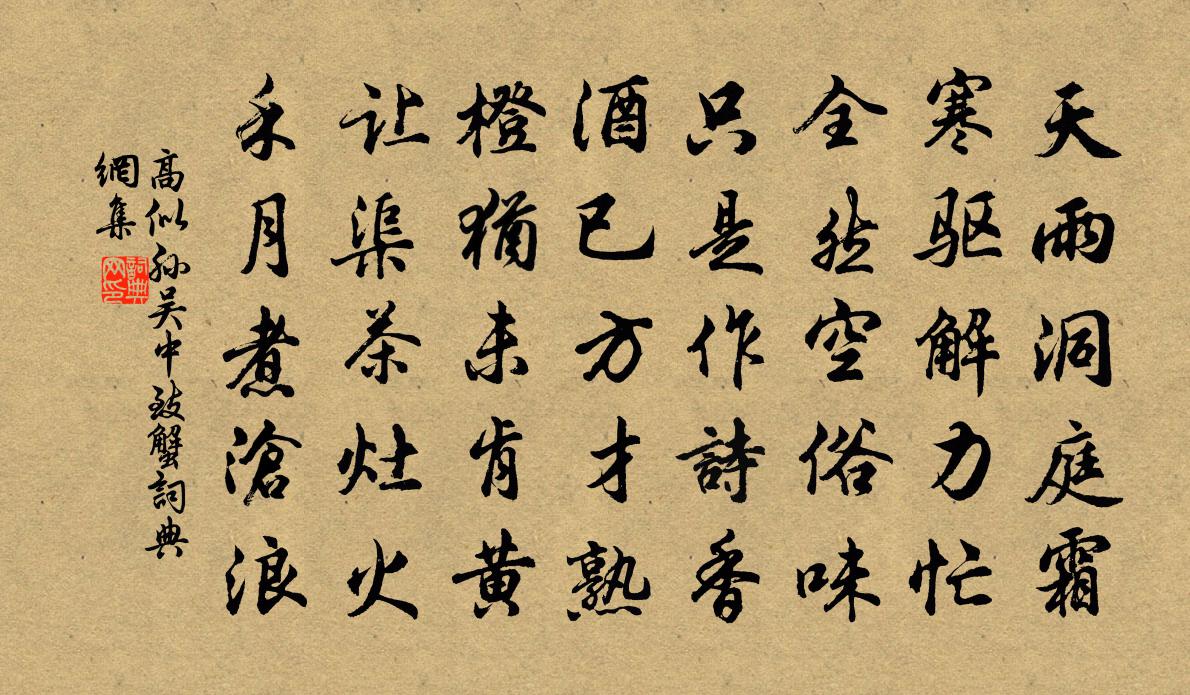 天雨洞庭霜
寒驱解力忙
全然空俗味
只是作詩香
酒已方才熟
橙猶未肯黄
让渠茶灶火
月煮滄浪
高似孙吴中致蟹詞典
網集
詞典
网印